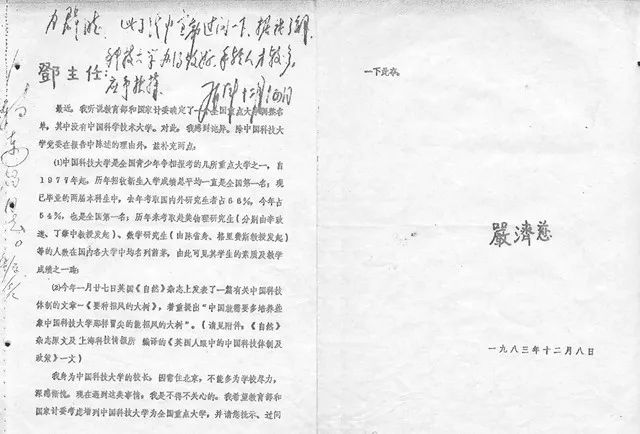 邓主任：
最近，我听说教育部和国家计委确定了一
全国重点大
名
单，其中没有中国科学技术大学。对此，我感到诧异。除中国科技大
学党委在报告中陈述的理由外，兹补充两点：
⑴中国科技大学是全国青少年争相报考的几所重点大学之一，自
1977年起，历年招收新生入学成绩总平均一直是全国第一名；现
已毕业的两届本科生中，去年考取国内外研究生者占66％，今年占
54％，也是全国第一名；历年来考取赴美物理研究生（分别由李政
道、丁肇中教授发起）、数学研究生（由陈省身、格里费斯教授发起）
等的人数在国内各大学中均名列前茅，由此可见其学生的素质及教学
成绩之一斑；
⑵今年一月廿七日英国《自然》杂志上发表了一篇有关中国科技
体制的文章—《要种招风的大树》，着重提出“中国就需要多培养些
象中国科技大学那样冒尖的能招风的大树”。（请见附件：《自然》
杂志原文及上海科技情报所 编译的《英国人眼中的中国科技体制及
政策》一文）
我身为中国科技大学的校长，因常住北京，不能多为学校尽力，
深感惭愧。现在遇到这类事情，我是不得不关心的。我希望教育部和
国家计委考虑增列中国科技大学为全国重点大学，并请您批示、过问
一下此事。
嚴濟慈
一九八三年十二月八日